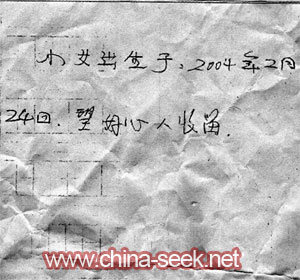 小女出生于、2004年2月
24日.望好心人收留.
www.china-seek.net